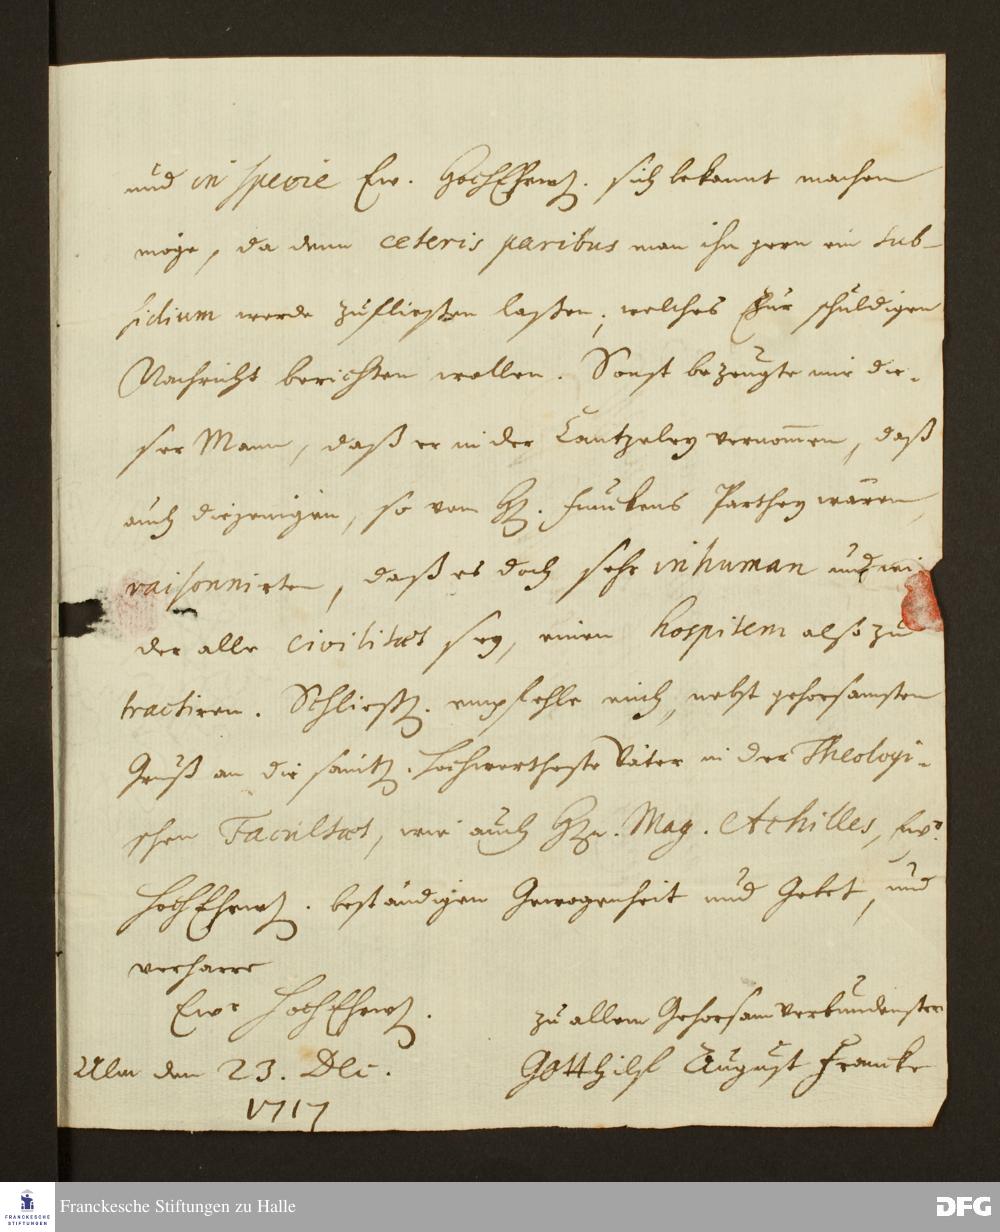 und in specie Ew. HochEhrw. sich bekannt machen
möge, da denn ceteris paribus man ihn gern ein sub-
sidium werde zufließen laßen, welches zur schuldigen
Nachricht berichten wollen. Sonst bezeugte mir die-
ser Mann, daß er in der Cantzeley vernommen, daß
auch diejenigen, so von H. Parthey wären,
raisonnirten, daß es doch sehr inhuman und wi
der alle civilitæt sey, einen hospitem also zu
tractiren. Schließl. empfehle mich, nebst gehorsamsten
Gruß an die sämtl. hochwertheste Väter in der Theologi-
schen Facultæt, wie auch Hrn. Mag. Achilles, Ewr.
HochEhrw. beständigen Gewogenheit und Gebet, und
verharre
Ewr HochEhrw.
zu allem Gehorsam verbundenster
Ulm den 23. Dec.
Gotthilf August Francke
1717
FRANCKESCHE STIFTUNGEN
Franckesche Stiftungen zu Halle
DFG